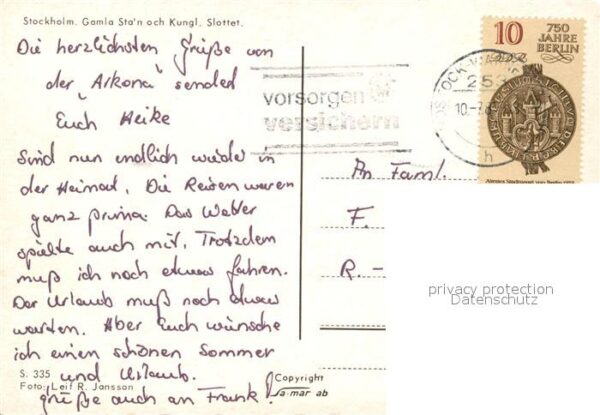 Stockholm. Gamla Sta'n och Kungl. Slottet.
Die herzlichsten Grüße von
der "Arkona" sended
Euch Heike
Sind nun endlich wieder in
der Heimat. Die Reisen waren
ganz prima. Das Wetter
spielte auch mit. Trotzdem
muß ich noch etwas fahren.
Der Urlaub muß noch etwas
warten. Aber Euch wünsche
ich einen schönen Sommer
und Urlaub.
Grüße auch an Frank!
S. 335
Foto: Leif R. Jansson
Copyright
Sa-mar ab
vorsorgen
versichern
253
10.-7.
h
10
750
JAHRE
BERLIN
An Faml.
F.
R. -
privacy protection
Datenschutz